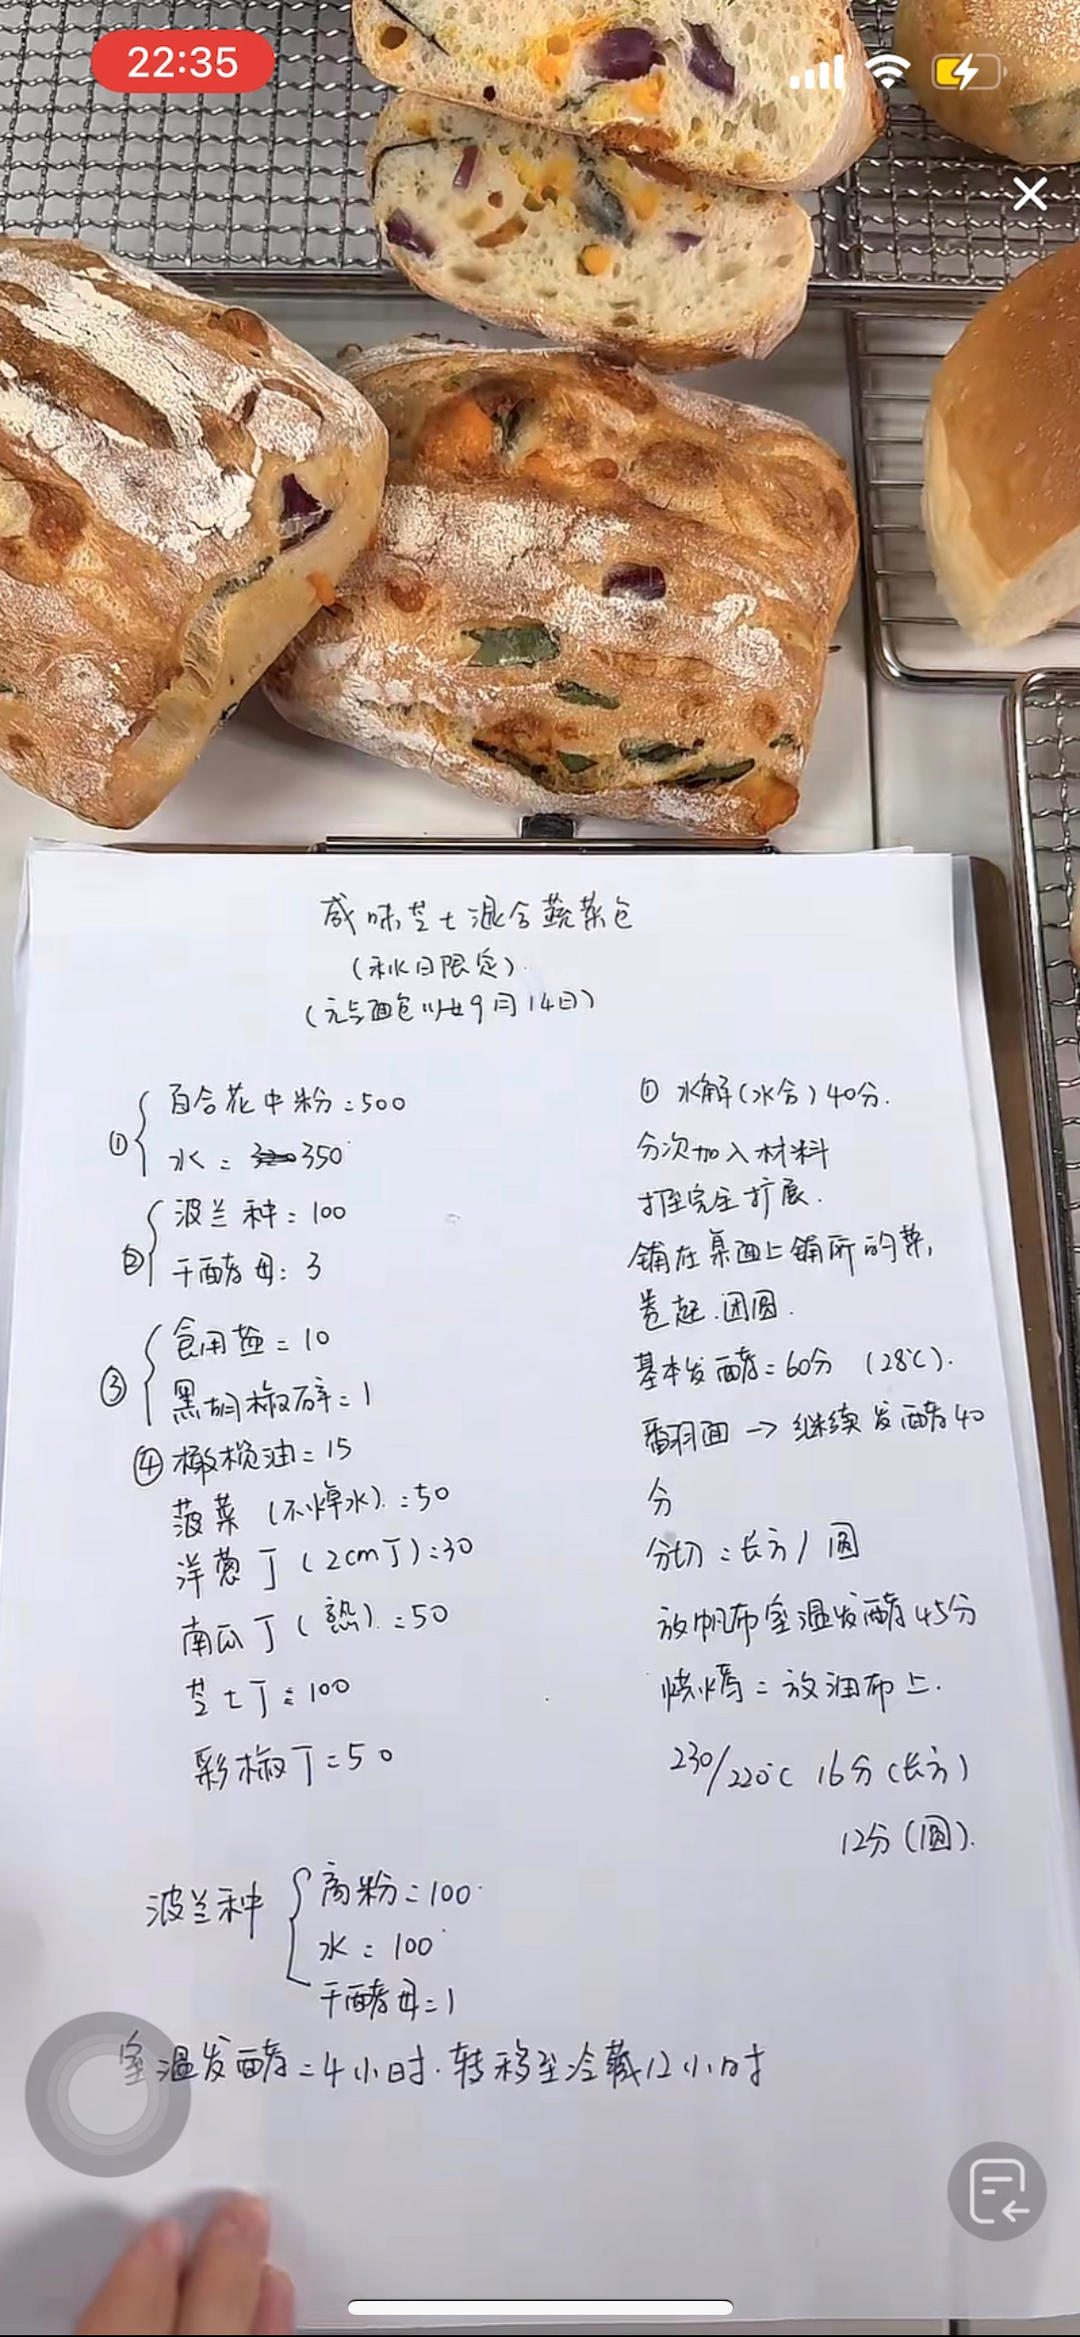 22:35
咸味芝士混合蔬菜包
(秋日限定).
(元与面包 9月14日)
① 百合花中粉:500
水:350
② 波兰种:100
干酵母:3
③ 食用盐=10
黑胡椒碎=1
④ 橄榄油=15
菠菜(不焯水).:50
洋葱丁(2cm丁):30
南瓜丁(熟).:50
芝士丁:100
彩椒丁=50
① 水解(水合)40分.
分次加入材料
打至完全扩展.
铺在桌面上铺所的菜,
卷起.团圆.
基本发酵=60分 (28℃).
翻面→继续发酵40
分
分切:长方/圆
放帆布室温发酵45分
烧烤=放油布上.
230/220℃ 16分(长方)
12分(圆).
波兰种 高粉=100
水:100
干酵母=1
室温发酵=4小时.转移至冷藏12小时